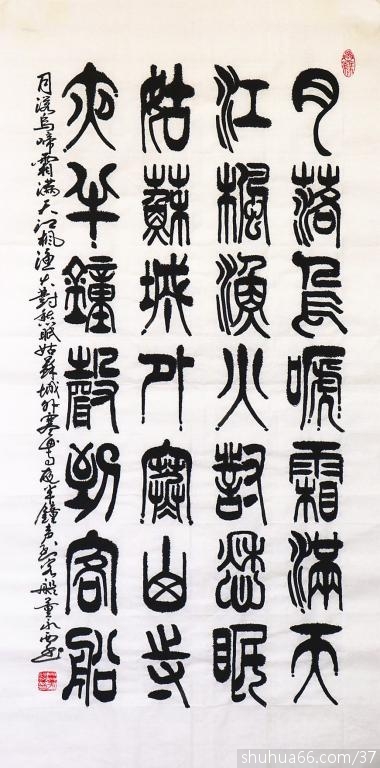 月落烏嗁霜滿天
江楓漁火對愁眠
姑蘇城外寒山寺
夜半鐘聲到客船
月落烏啼霜滿天江楓渔火對愁眠姑蘇城外寒山寺夜半鐘声到客船董永
shuhua66.com/37